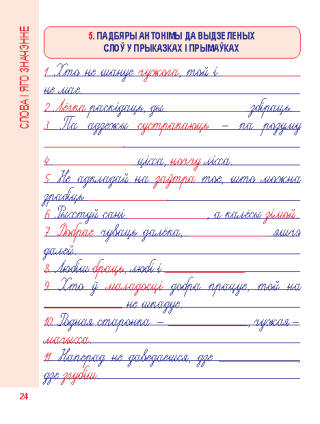 СЛОВА І ЯГО ЗНАЧЭННЕ
5. ПАДБЯРЫ АНТОНІМЫ ДА ВЫДЗЕЛЕНЫХ
СЛОЎ У ПРЫКАЗКАХ І ПРЫМАЎКАХ
1. Хто не шануе чужога, той і
не мае.
2. Лёгка раскідаць, ды збраць.
3. Па адзежы сустракаюць – па розуму
.
4. цісса, ноччу лісса.
5. Не адкладай на заўтра тое, што можна
зрабіць .
6. Рыхтуй сані , а калёсы зімой.
7. Добрае чуваць далёка, яшчэ
далей.
8. Любіш браць, любі і
9. Хто ў маладосці добра працуе, той на
не шкадуе.
10. Родная старонка – , чужая –
мачыха.
11. Наперад не даведаешся, дзе ,
дзе згубіш.
24